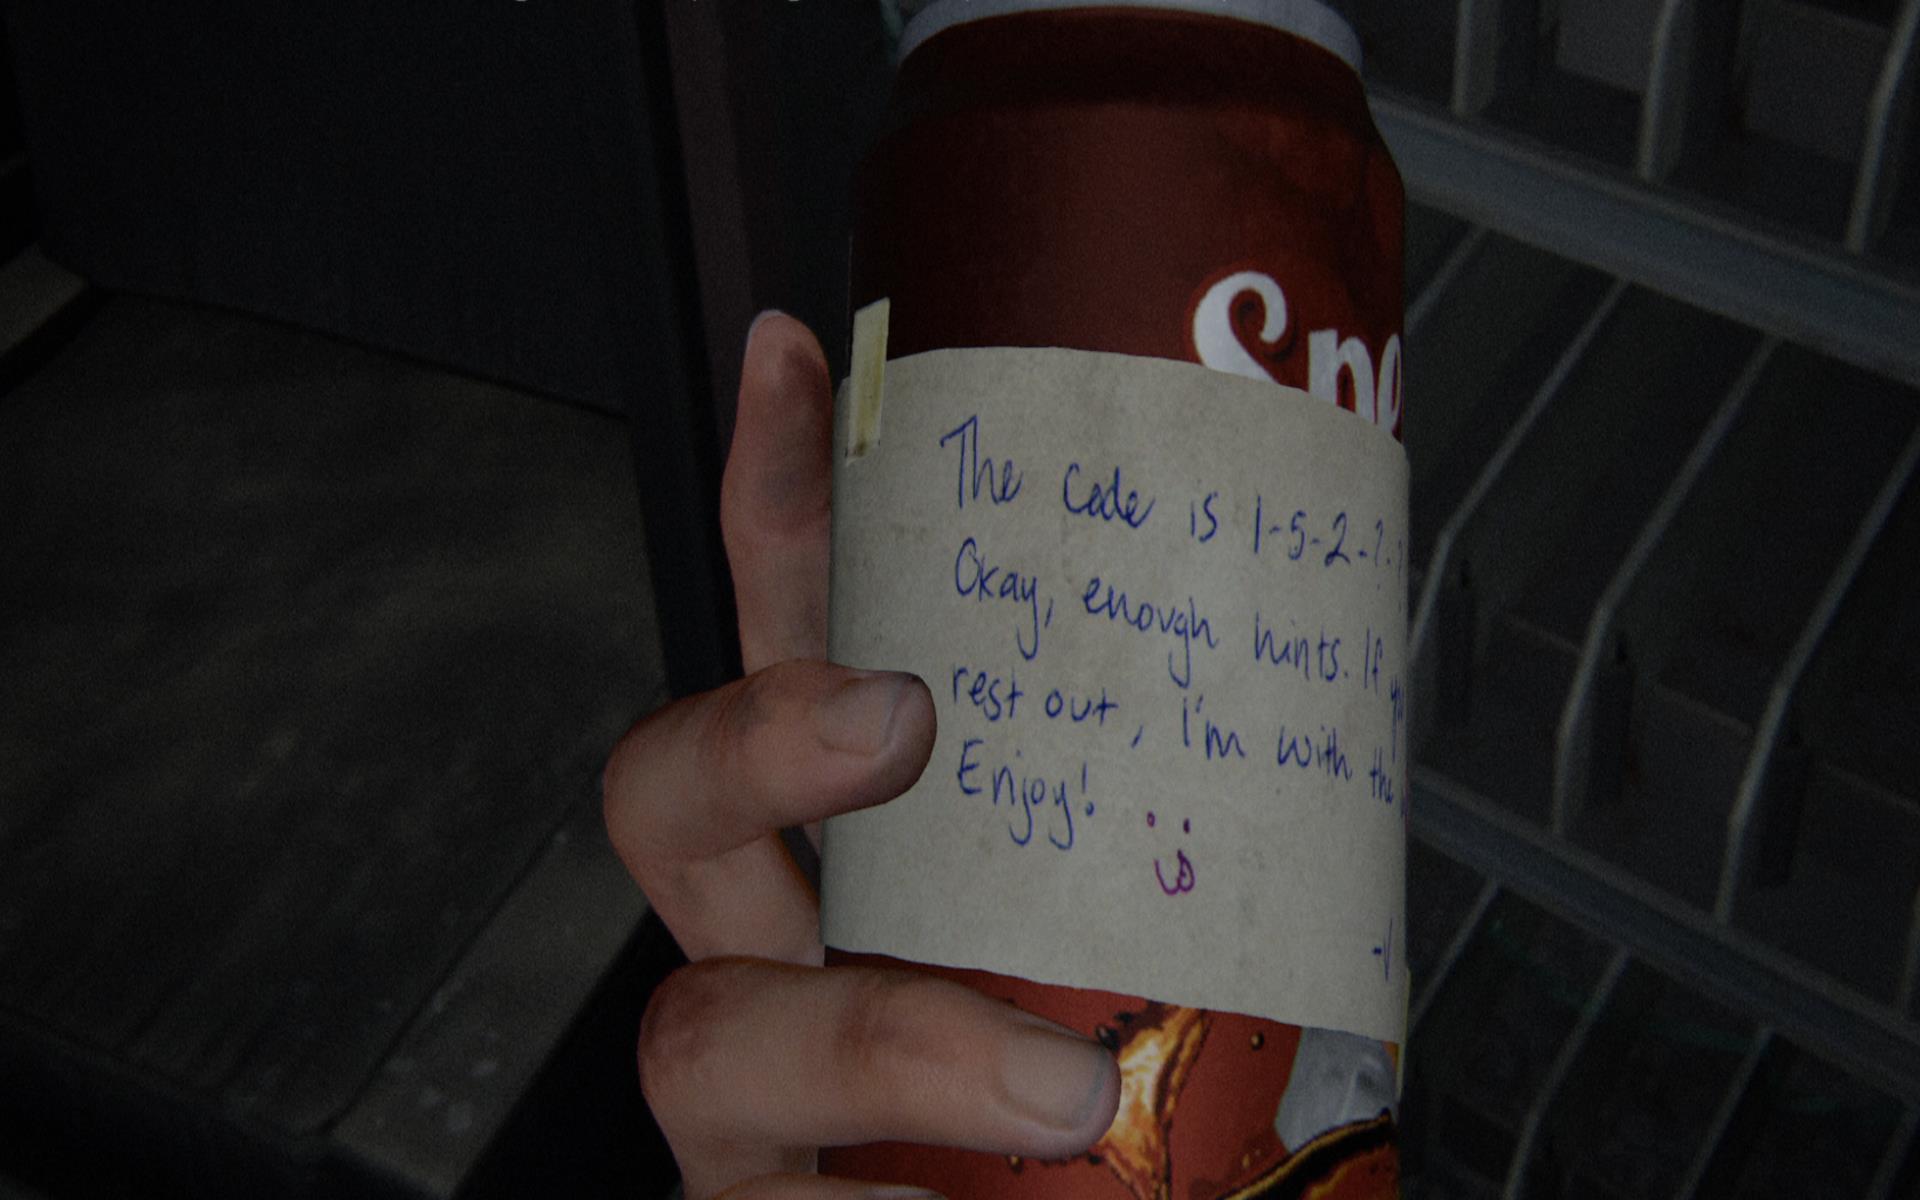 Spe
The code is 1-5-2-?-
Okay, enough hints. If
rest out, I'm with the
Enjoy!
-V